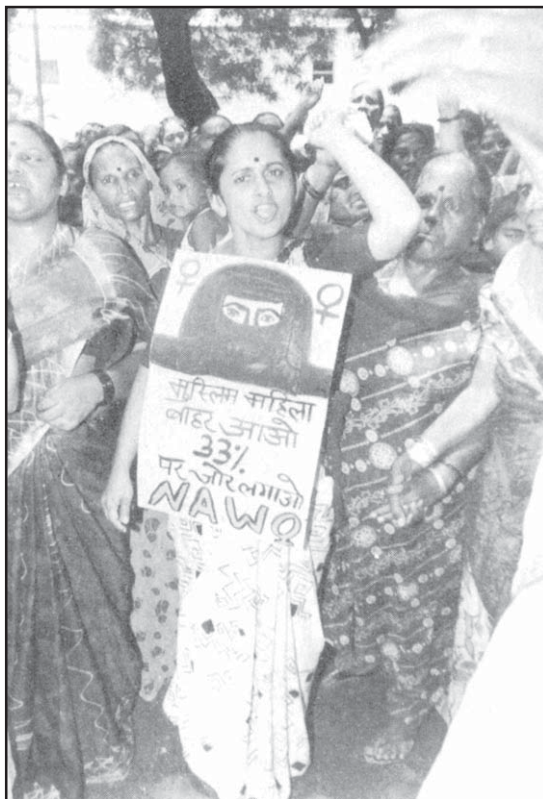 मुस्लिम महिला
बाहर आओ
33%
पर जोर लगाओ
NAWO